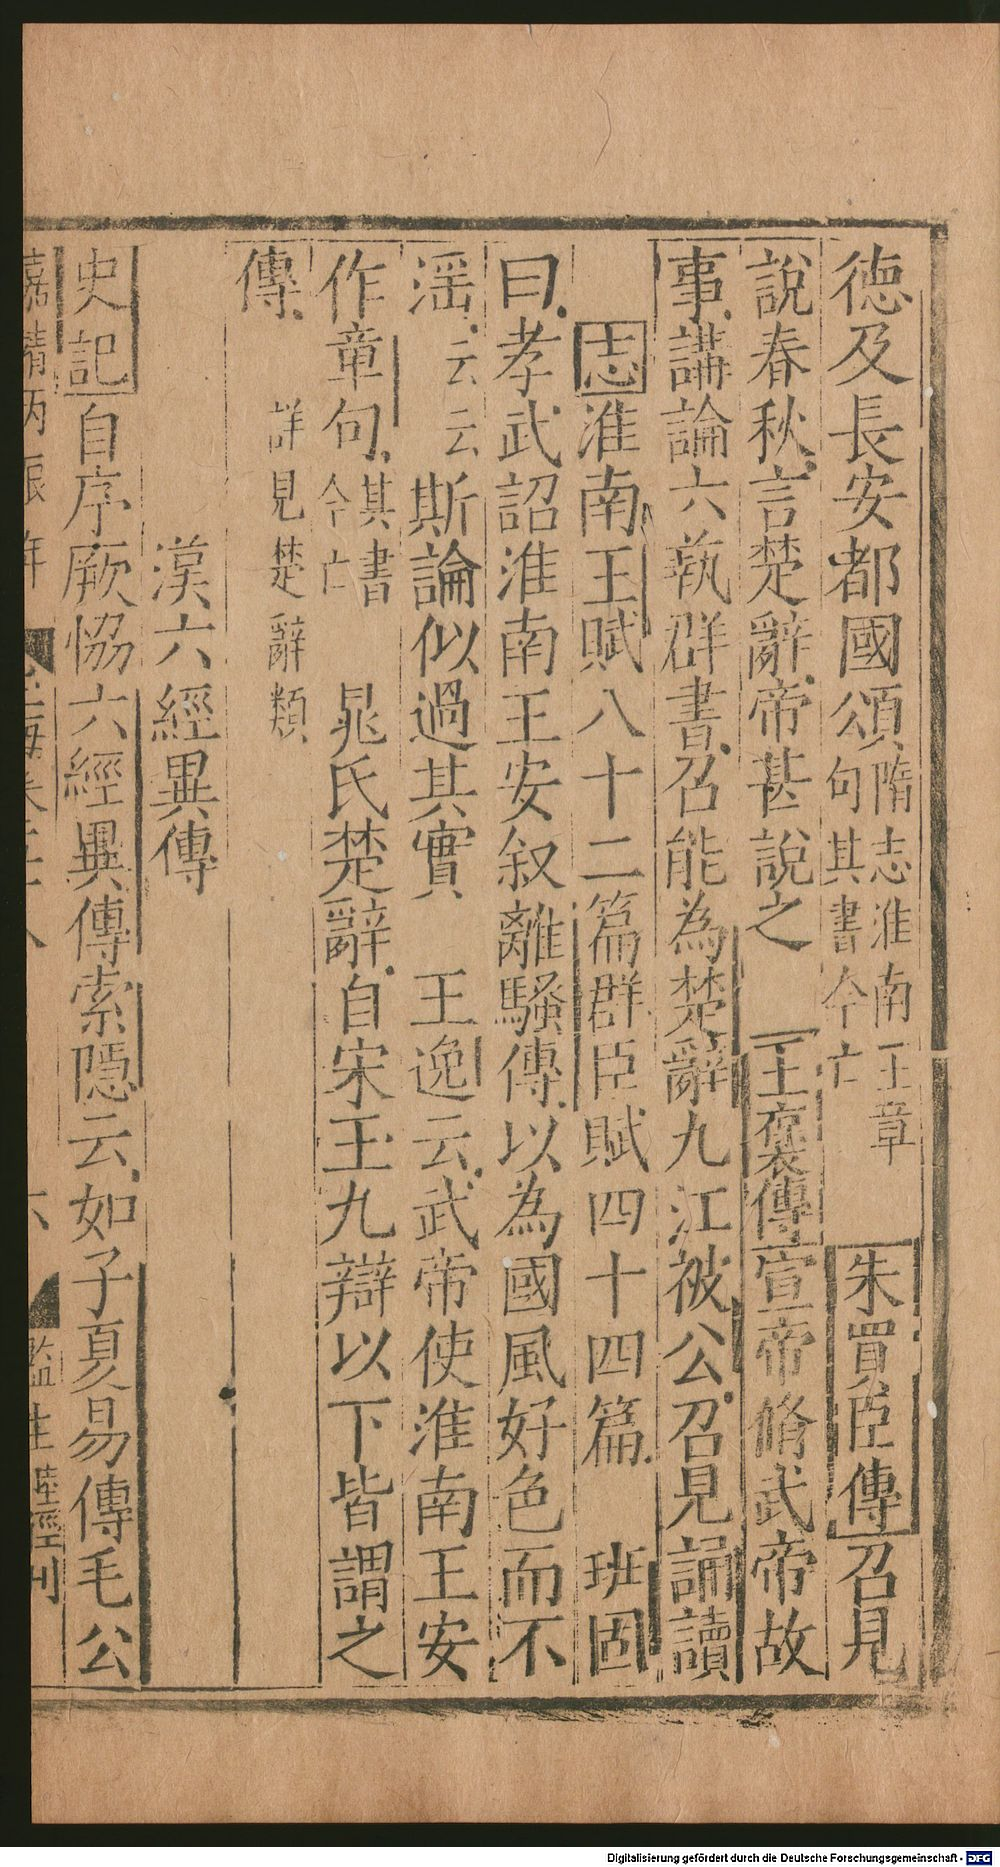 德及長安都國頌隋志淮南王章句其書今亡 朱買臣傳召見
說春秋言楚辭帝甚說之 王襃傳宣帝脩武帝故
事講論六埶群書召能為楚辭九江被公召見誦讀
志淮南王賦八十二篇群臣賦四十四篇 班固
曰孝武詔淮南王安叙離騷傳以為國風好色而不
滛云云斯論似過其實 王逸云武帝使淮南王安
作章句其書今亡 晁氏楚辭自宋玉九辯以下皆謂之
傳詳見楚辭類
漢六經異傳
史記自序厥恊六經異傳索隱云如子夏易傳毛公
嘉靖丙辰年 玉海卷 六 監生陸經刊
Digitalisierung gefördert durch die Deutsche Forschungsgemeinschaft - DFG